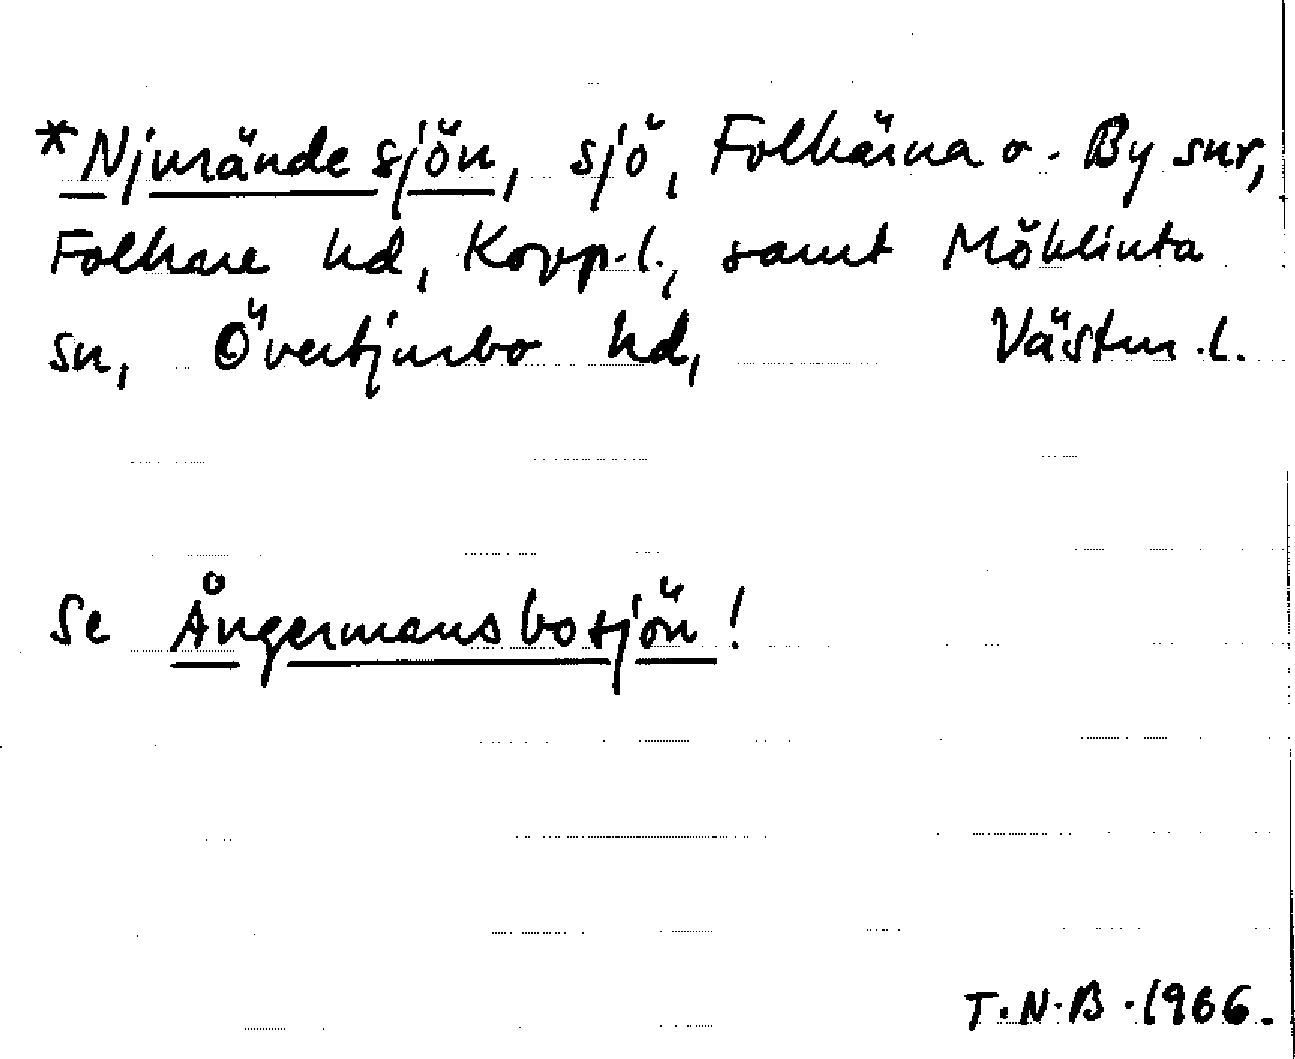 *Njurändesjön, sjö, Folkärna o. By snr,
Folkare hd, Kopp.l., samt Möklinta
sn, Övertjurbo hd, Västm.l.
Se Ångermansbosjön!
T.N.B. 1966.